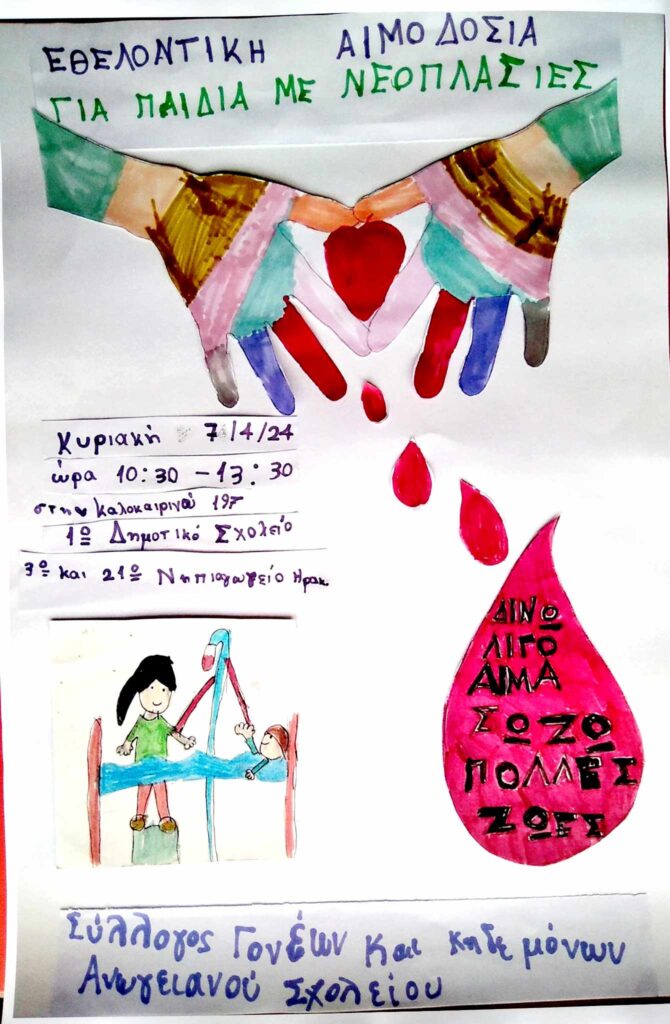 ΕΘΕΛΟΝΤΙΚΗ ΑΙΜΟΔΟΣΙΑ
ΓΙΑ ΠΑΙΔΙΑ ΜΕ ΝΕΟΠΛΑΣΙΕΣ
Κυριακή 7/4/24
ώρα 10:30 - 13:30
στην Καλοκαιρινού 197
1ο Δημοτικό Σχολείο
3ο και 21ο Νηπιαγωγείο Ηρακ
ΔΙΝΩ
ΛΙΓΟ
ΑΙΜΑ
ΣΩΖΩ
ΠΟΛΛΕΣ
ΖΩΕΣ
Σύλλογος Γονέων Και κηδεμόνων
Ανωγειανού Σχολείου